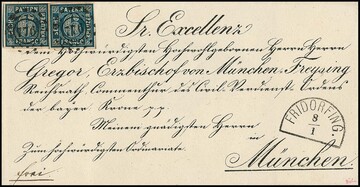 Sr. Excellenz
dem Hochwürdigsten Hochwohlgebornen Herrn Herrn
Gregor, Erzbischof von München Freysing
Reichsrath, Commenthur des Civil-Verdienst-Ordens
der bayer Krone p.p.
Meinem gnädigsten Herrn
in
Zum hochwürdigsten Ordinariate.
München.
frei
FRIDORFING.
8
1